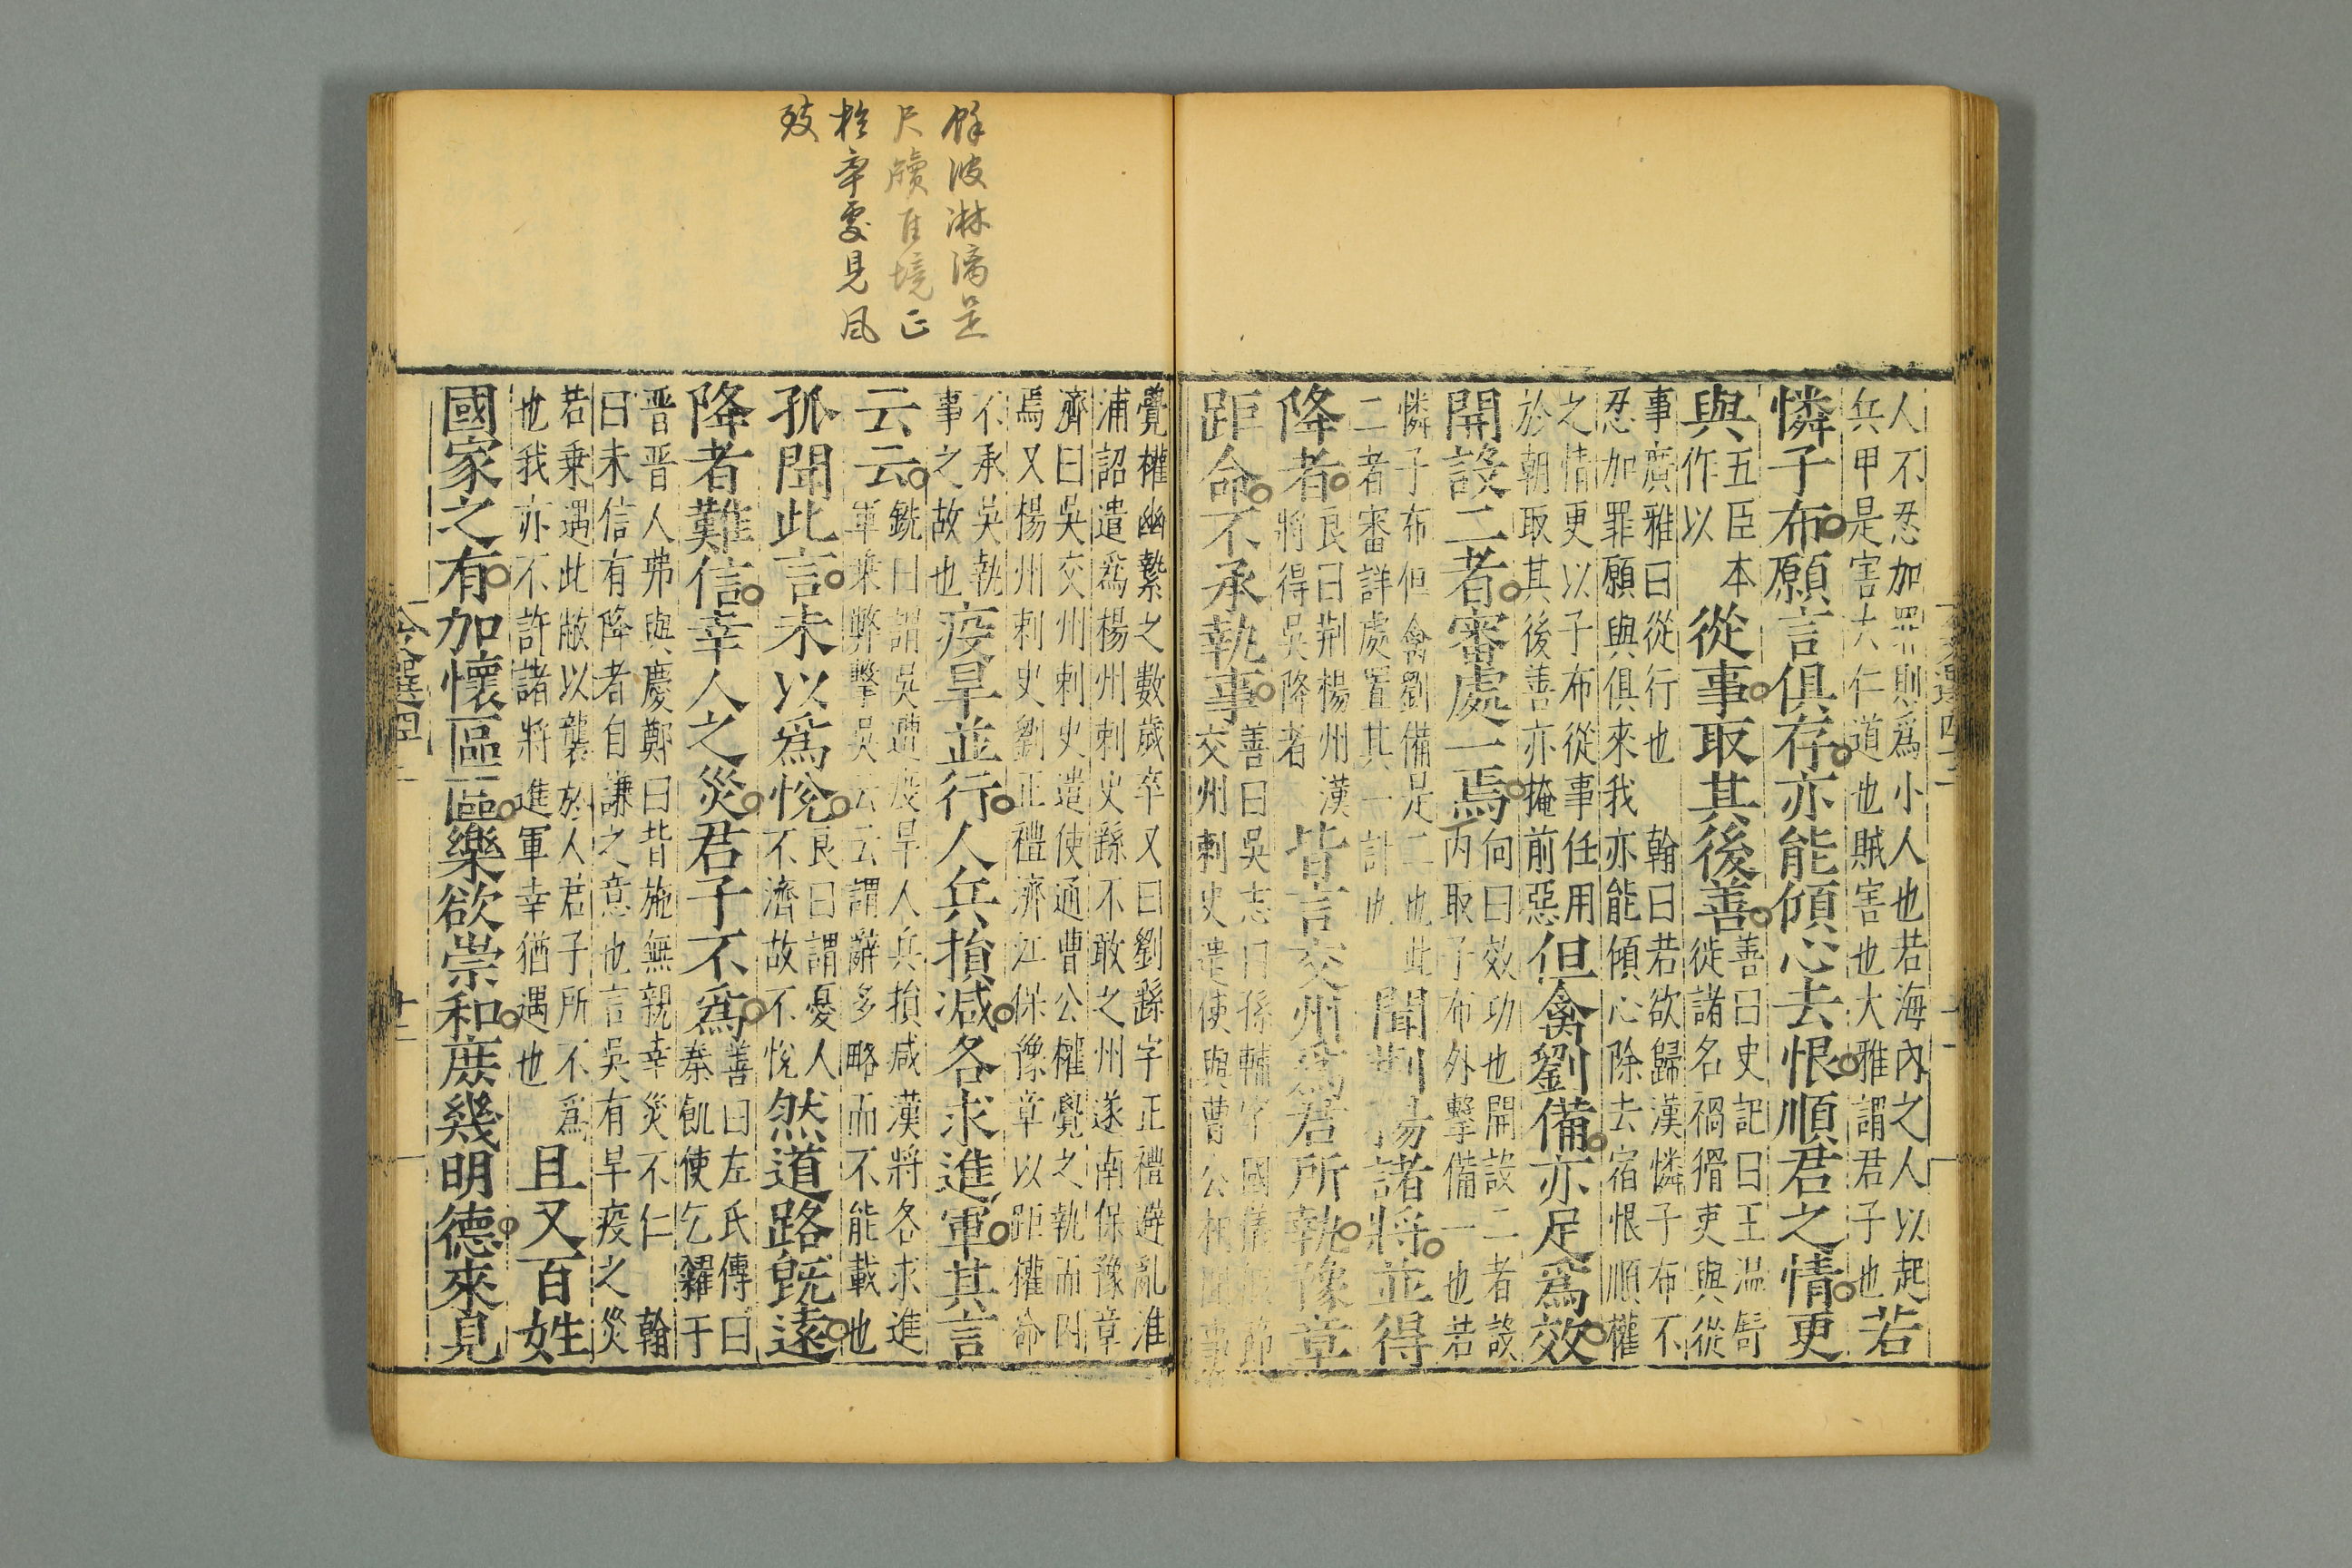 人不忍加罪則爲小人也若海內之人以起
兵甲是害大仁道也賊害也大雅謂君子也
若
憐子布願言俱存亦能傾心去恨順君之情更
與
五臣本
作以
從事取其後善
善曰史記曰王温舒
徙諸名禍猾吏與從
事廣雅曰從行也 翰曰若欲歸漢憐子布不
忍加罪願與俱來我亦能傾心除去宿恨順權
之情更以子布從事任用
於朝取其後善亦掩前惡
但禽劉備亦足爲效
開設二者審處一焉
向曰效功也開設二者設
丙取子布外擊備一也若
憐子布但禽劉備是二也此
二者審詳處置其一計也
聞荆楊諸將並得
降者
良曰荆楊州漢
將得吳降者
皆言交州爲君所執豫章
距命不承執事
善曰吳志曰孫輔字國儀假節
交州刺史遣使與曹公相聞事
覺權幽縶之數歲卒又曰劉繇字正禮避亂淮
浦詔遣爲楊州刺史繇不敢之州遂南保豫章
濟曰吳交州刺史遣使通曹公權覺之執而囚
焉又楊州刺史劉正禮濟江保豫章以距權命
不承吳執
事之故也
疫旱並行人兵損減各求進軍其言
云云
銑曰謂吳遭疫旱人兵損咸漢將各求進
軍乘弊擊吳云云謂辭多略而不能載也
孤聞此言未以爲悅
良曰謂憂人
不濟故不悅
然道路旣遠
降者難信幸人之災君子不爲
善曰左氏傳曰
秦飢使乞糴于
晋晋人弗與慶鄭曰背施無親幸災不仁 翰
曰未信有降者自謙之意也言吳有旱疫之災
若乗遇此敝以襲於人君子所不爲
也我亦不許諸將進軍幸猶遇也
且又百姓
國家之有加懷區區樂欲崇和庻幾明德來見
淋漓
尺牘
見風
致